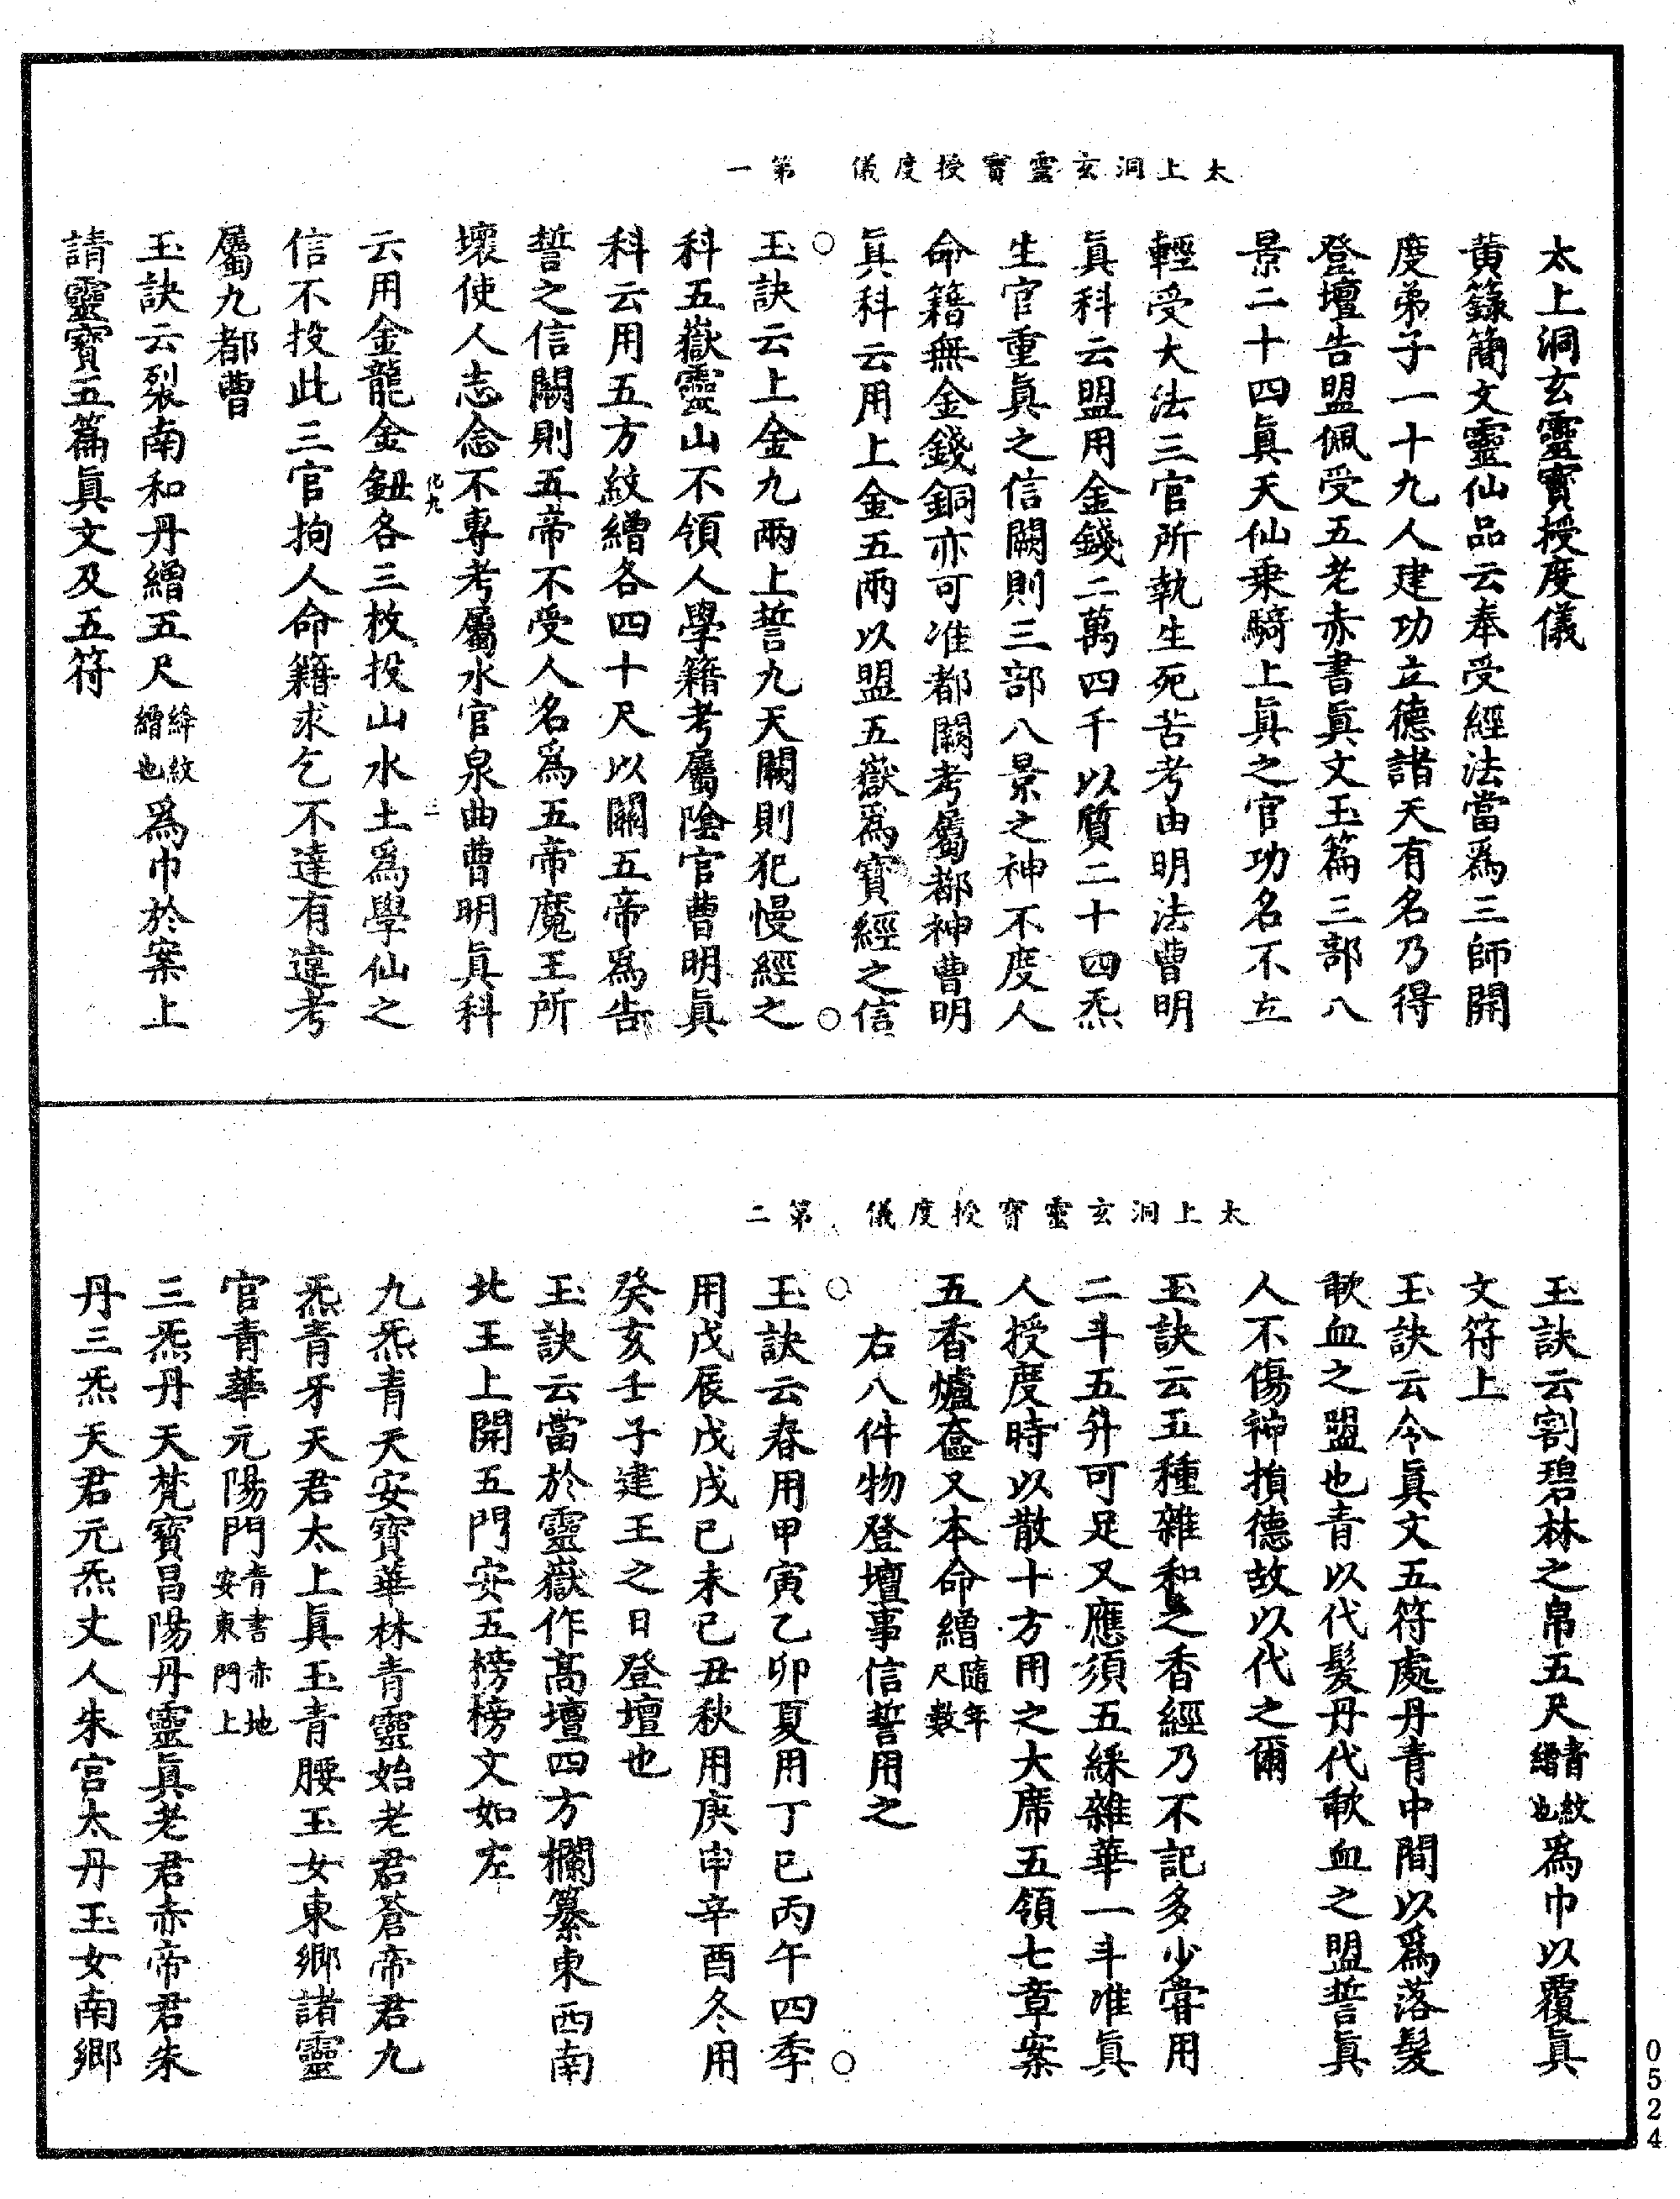 太上洞玄靈寶授度儀　第一
太上洞玄靈寶授度儀
黃籙簡文靈仙品云奉受經法當爲三師開
度弟子一十九人建功立德諸天有名乃得
登壇告盟佩受五老赤書眞文玉篇三部八
景二十四眞天仙乗騎上眞之官功名不立
輕受大法三官所執生死苦考由明法曹明
眞科云盟用金錢二萬四千以質二十四炁
生官重眞之信闕則三部八景之神不度人
命籍無金錢銅亦可准都闕考屬都神曹明
眞科云用上金五兩以盟五嶽爲寶經之信
玉訣云上金九兩上誓九天闕則犯慢經之
科五嶽靈山不領人學籍考屬陰官曹明眞
科云用五方紋繒各四十尺以關五帝爲告
誓之信闕則五帝不受人名爲五帝魔王所
壞使人志念不專考屬水官泉曲曹明眞科
化九　三
云用金龍金鈕各三枚投山水土爲學仙之
信不投此三官拘人命籍求乞不達有違考
屬九都曹
玉訣云裂南和丹繒五尺絳紋繒也爲巾於案上
請靈寶五篇眞文及五符
太上洞玄靈寶授度儀　第二
玉訣云割碧林之帛五尺青紋繒也爲巾以覆眞
文符上
玉訣云今眞文五符處丹青中間以爲落髮
歃血之盟也青以代髮丹代歃血之盟誓眞
人不傷神損德故以代之爾
玉訣云五種雜和之香經乃不記多少嘗用
二斗五升可足又應須五綵雜華一斗准眞
人授度時以散十方用之大席五領七章案
五香爐奩又本命繒隨年尺數
右八件物登壇事信誓用之
玉訣云春用甲寅乙卯夏用丁巳丙午四季
用戊辰戊戌己未己丑秋用庚申辛酉冬用
癸亥壬子建王之日登壇也
玉訣云當於靈嶽作高壇四方欄纂東西南
北王上開五門安五榜榜文如左
九炁青天安寶華林青靈始老君蒼帝君九
炁青牙天君太上眞玉青腰玉女東鄉諸靈
官青華元陽門青書赤地安東門上
三炁丹天梵寶昌陽丹靈眞老君赤帝君朱
丹三炁天君元炁丈人朱宮太丹玉女南鄉
0524